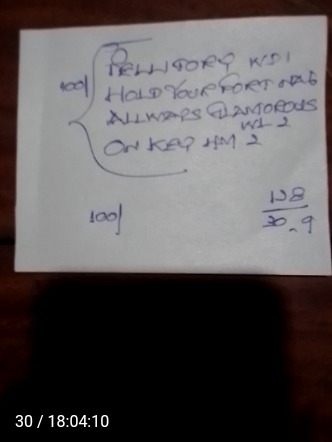 100/
PELLITORY WD1
HOLD YOUR FORT
ALLWAYS GLAMOROUS
WL 2
ON KEY HM 2
128
100/
30 - 9
30 / 18:04:10